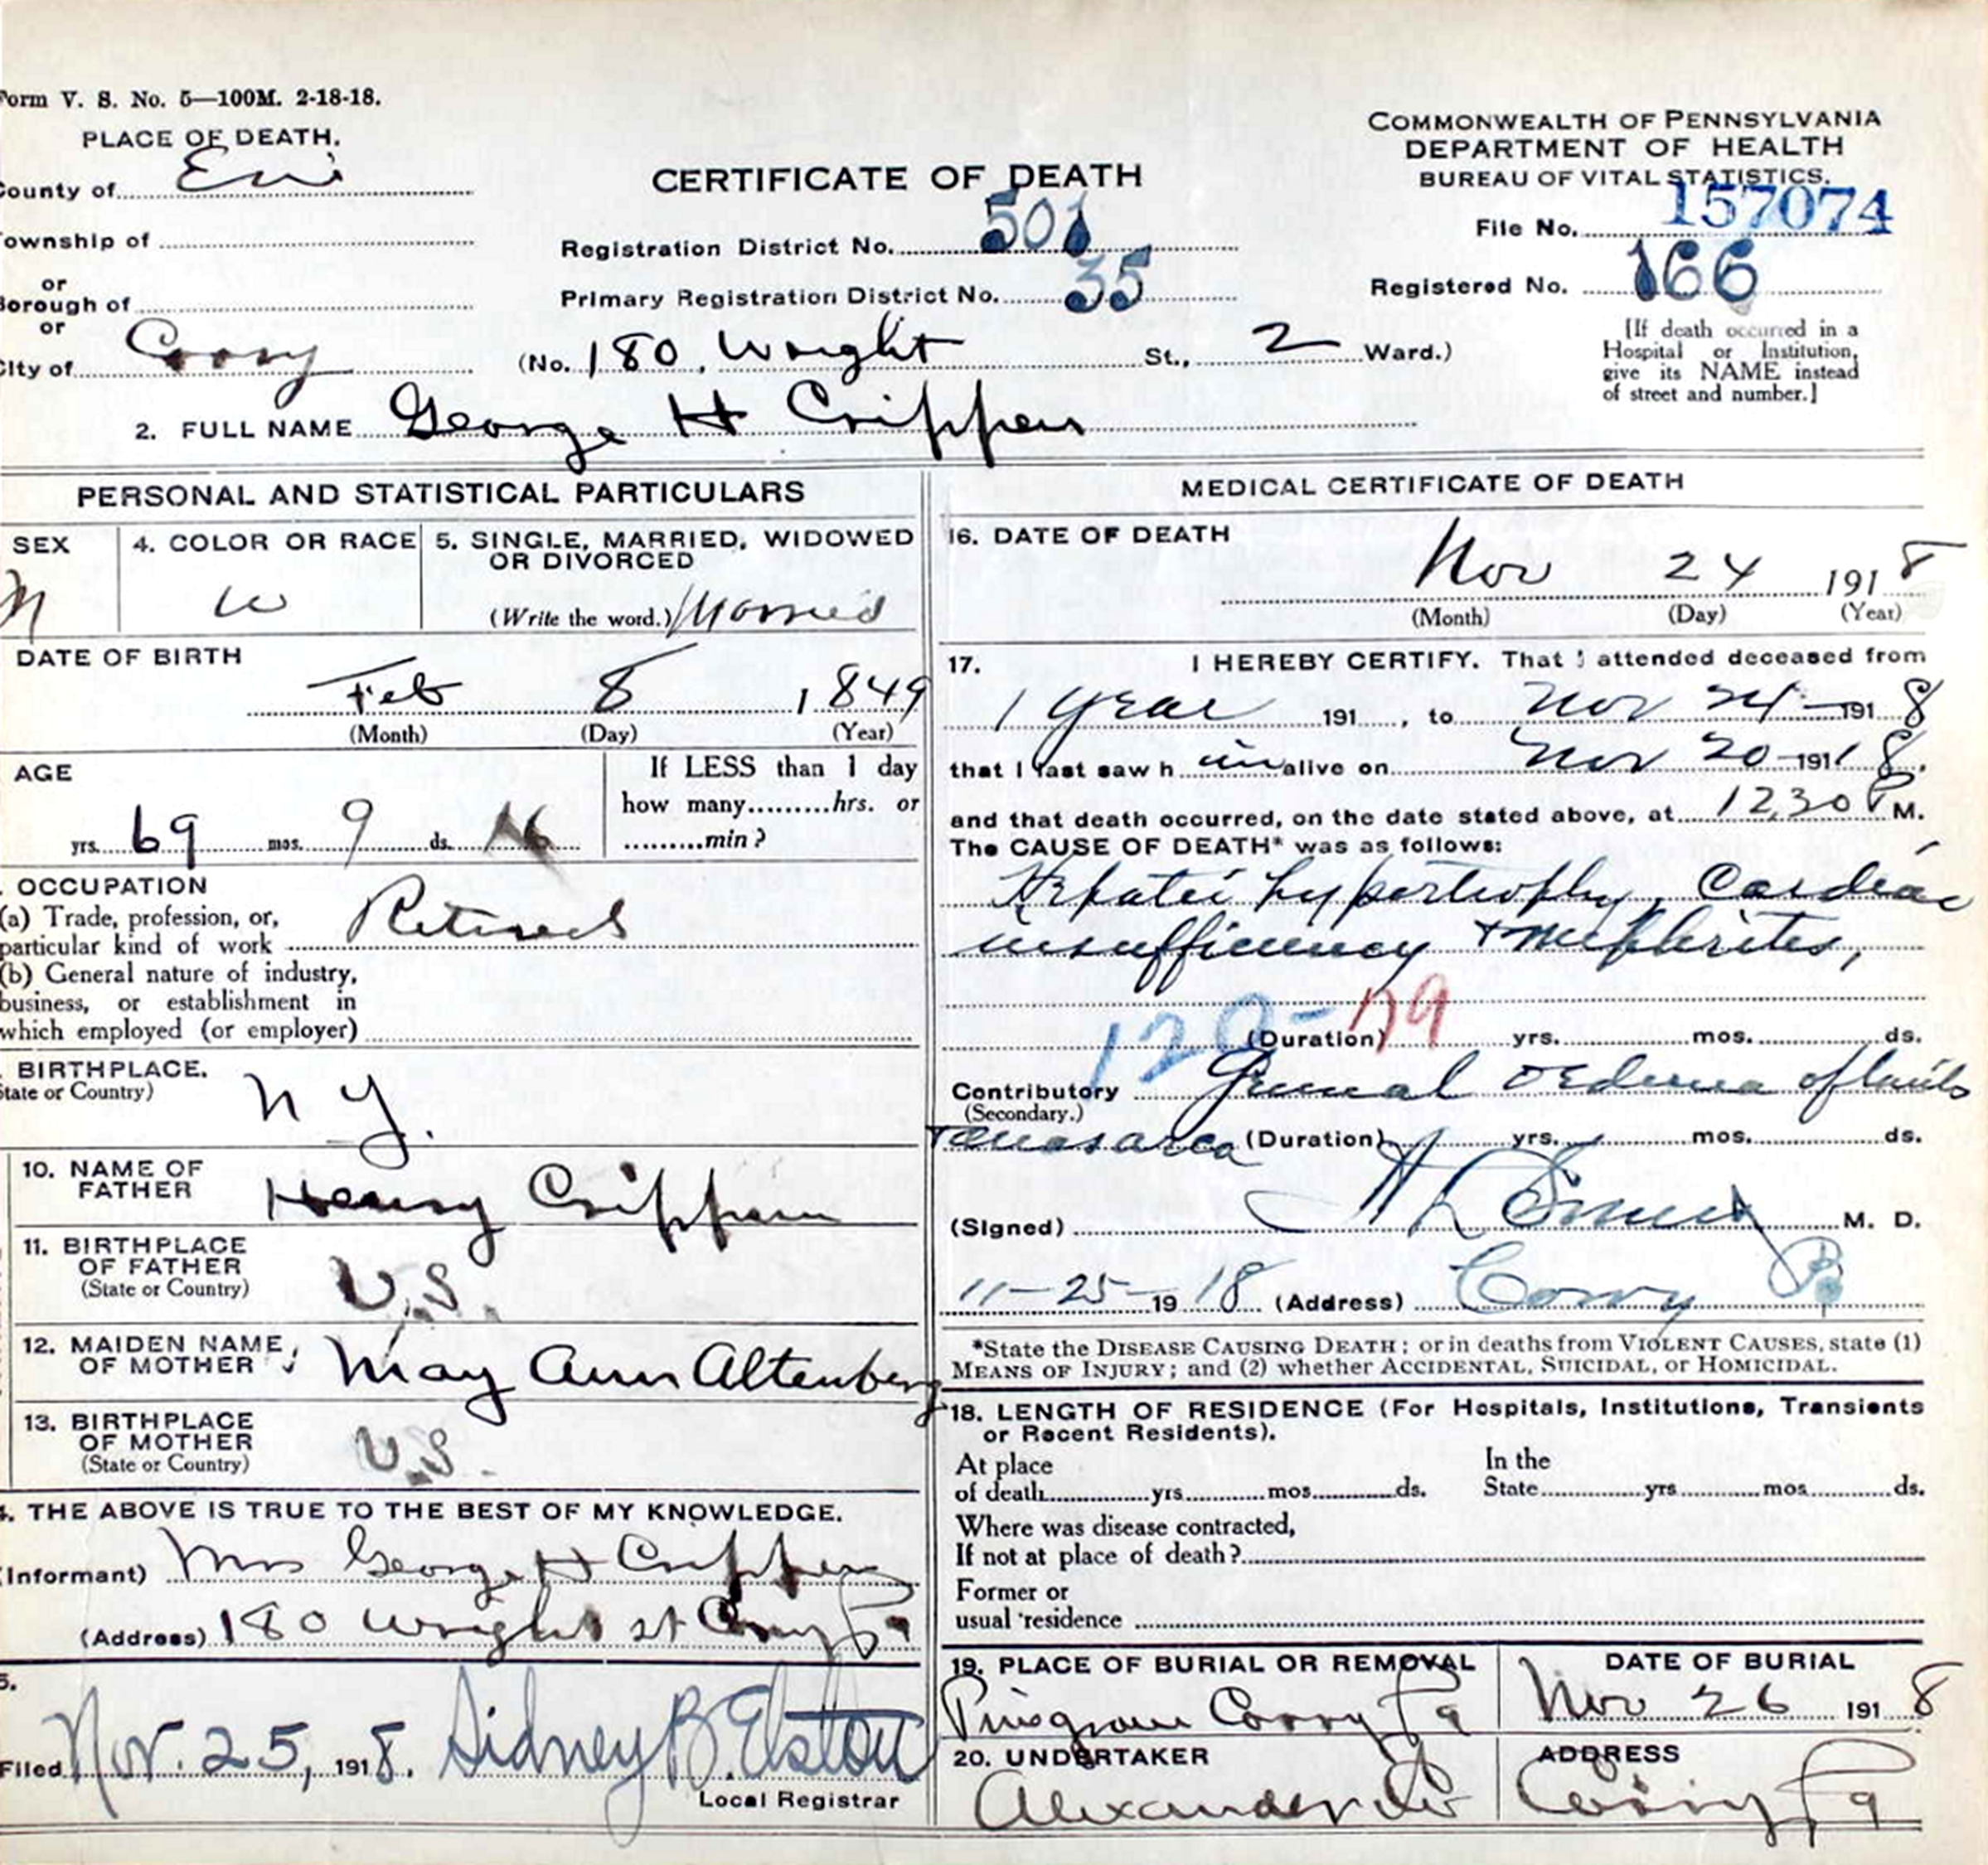 Form V. S. No. 5—100M. 2-18-18.
PLACE OF DEATH.
County of Erie
Township of
or
Borough of
or
City of Corry
CERTIFICATE OF DEATH
Registration District No. 501
Primary Registration District No. 35
(No. 180, Wright St., 2 Ward.)
COMMONWEALTH OF PENNSYLVANIA
DEPARTMENT OF HEALTH
BUREAU OF VITAL STATISTICS.
File No. 157074
Registered No. 166
[If death occurred in a
Hospital or Institution,
give its NAME instead
of street and number.]
2. FULL NAME George H Crippen
PERSONAL AND STATISTICAL PARTICULARS
SEX
M
4. COLOR OR RACE
W
5. SINGLE, MARRIED, WIDOWED
OR DIVORCED
(Write the word.) Married
DATE OF BIRTH
Feb 8 1849
(Month) (Day) (Year)
AGE
yrs. 69 mos. 9 ds. 16
If LESS than 1 day
how many.........hrs. or
.........min ?
. OCCUPATION
(a) Trade, profession, or,
particular kind of work Retired
(b) General nature of industry,
business, or establishment in
which employed (or employer)
. BIRTHPLACE.
State or Country)
N Y.
10. NAME OF
FATHER
Henry Crippen
11. BIRTHPLACE
OF FATHER
(State or Country)
U.S.
12. MAIDEN NAME
OF MOTHER
May Ann Altenberg
13. BIRTHPLACE
OF MOTHER
(State or Country)
U.S.
4. THE ABOVE IS TRUE TO THE BEST OF MY KNOWLEDGE.
(Informant) Mrs George H Crippen
(Address) 180 Wright st Corry Pa
5.
Filed Nov. 25, 1918. Sidney B. Elston
Local Registrar
MEDICAL CERTIFICATE OF DEATH
16. DATE OF DEATH
Nov 24 1918
(Month) (Day) (Year)
17. I HEREBY CERTIFY. That I attended deceased from
1 year 191 , to Nov 24 1918
that I last saw h im alive on Nov 20 1918.
and that death occurred, on the date stated above, at 12.30 P M.
The CAUSE OF DEATH* was as follows:
Hepatic hypertrophy, Cardiac
insufficiency + nephritis,
120-79
(Duration) yrs. mos. ds.
Contributory General oedema of limbs
(Secondary.)
+anasarca (Duration) yrs. mos. ds.
(Signed) M. D.
11-25-1918 (Address) Corry Pa
*State the DISEASE CAUSING DEATH; or in deaths from VIOLENT CAUSES, state (1)
MEANS OF INJURY; and (2) whether ACCIDENTAL, SUICIDAL, or HOMICIDAL.
18. LENGTH OF RESIDENCE (For Hospitals, Institutions, Transients
or Recent Residents).
At place
of death yrs. mos. ds.
In the
State yrs. mos. ds.
Where was disease contracted,
If not at place of death?
Former or
usual residence
19. PLACE OF BURIAL OR REMOVAL
Pinegrove Corry Pa
DATE OF BURIAL
Nov 26 1918
20. UNDERTAKER
Alexander Co
ADDRESS
Corry Pa